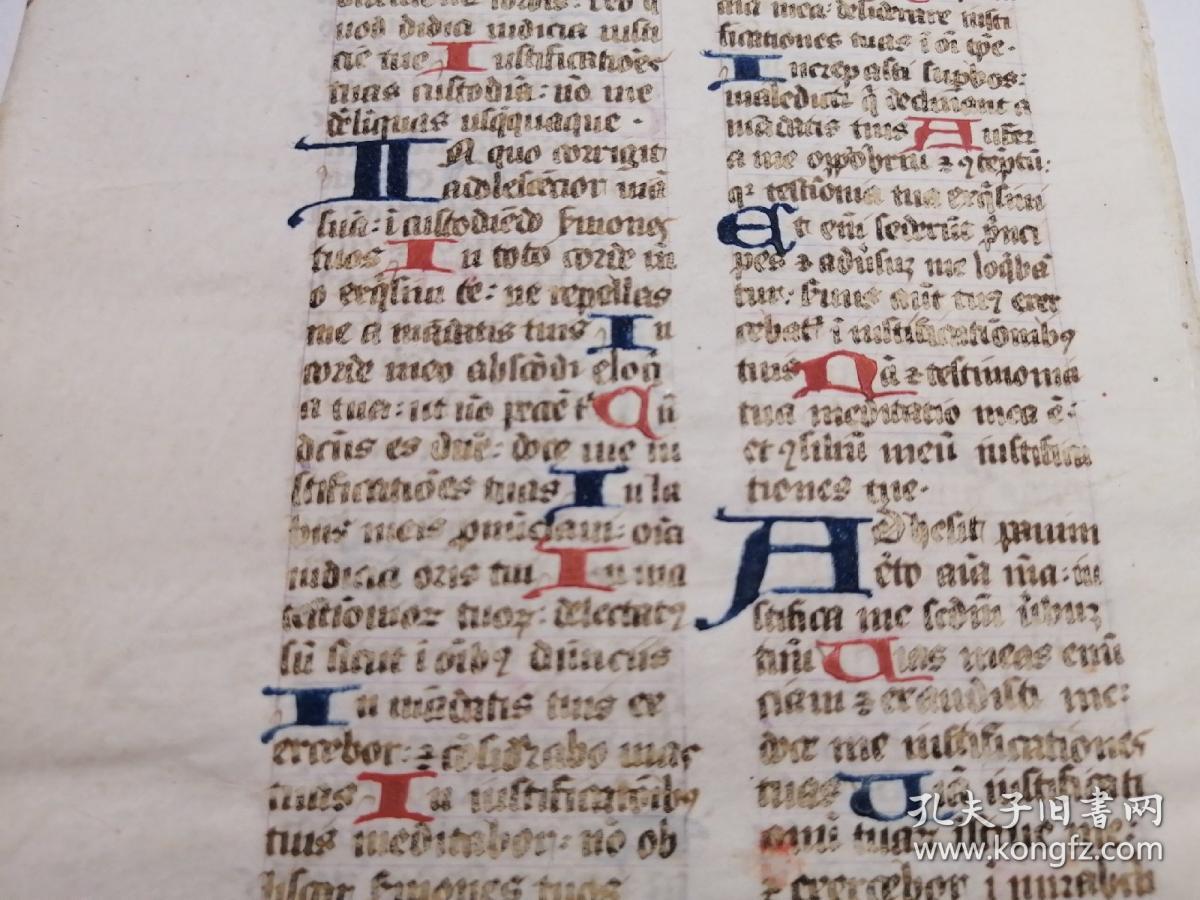 uod didici iudicia iusti
cie tue Iustificatiões
tuas custodiã: nõ me
deliquas usq̃quaque.
IN quo corrigit
adolescẽcior uiã
suã: ĩ custodiẽdo s̃mones
tuos In toto corde me
o exq̃siui te: ne repellas
me a mãdatis tuis In
corde meo abscõdi eloq̃
a tua: ut nõ peccẽ t' Bñ
dc̃us es dñe: doce me iu
stificatiões tuas In la
bijs meis ꝓnũciaui: oĩa
iudicia oris tui In uia
testĩoniorꝝ tuorꝝ: delectatꝰ
sũ sicut ĩ oĩbꝰ diuiciis
In mãdatis tuis ex
ercebor: ⁊ cõsid'abo uias
tuas In iustificatõibꝰ
tuis meditabor: nõ ob
liuiscar s̃mones tuos
aĩa mea desiderare iusti
ficationes tuas ĩ oĩ tp̃e.
Increpasti sup̃bos:
maledicti q̃ declinant a
mãdatis tuis Aufer
a me opprobriũ ⁊ ꝯteptũ:
q2 testĩonia tua exq̃siui
Et eni sederũt p̃nci
pes ⁊ aduˀsuꝫ me loq̃bã
tur: s̃uus aũt tuꝰ exer
cebat' ĩ iustificatiõnibꝰ
tuis Nã ⁊ testimonia
tua meditatio mea ẽ:
et ꝯsiliũ meũ iustifica
tiones tue.
Adhesit pauim
ẽto aĩa mea: ui
uifica me scd̃m ũbuꝫ
tuũ Uias meas enũ
ciaui ⁊ exaudisti me:
doce me iustificationes
tuas Uiã iustificati
onũ tuarꝝ instrue me:
⁊ exercebor ĩ mirabili
孔夫子旧書网
www.kongfz.com